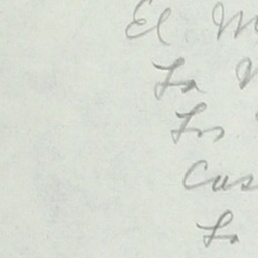 El M
La
Los
Cas
La